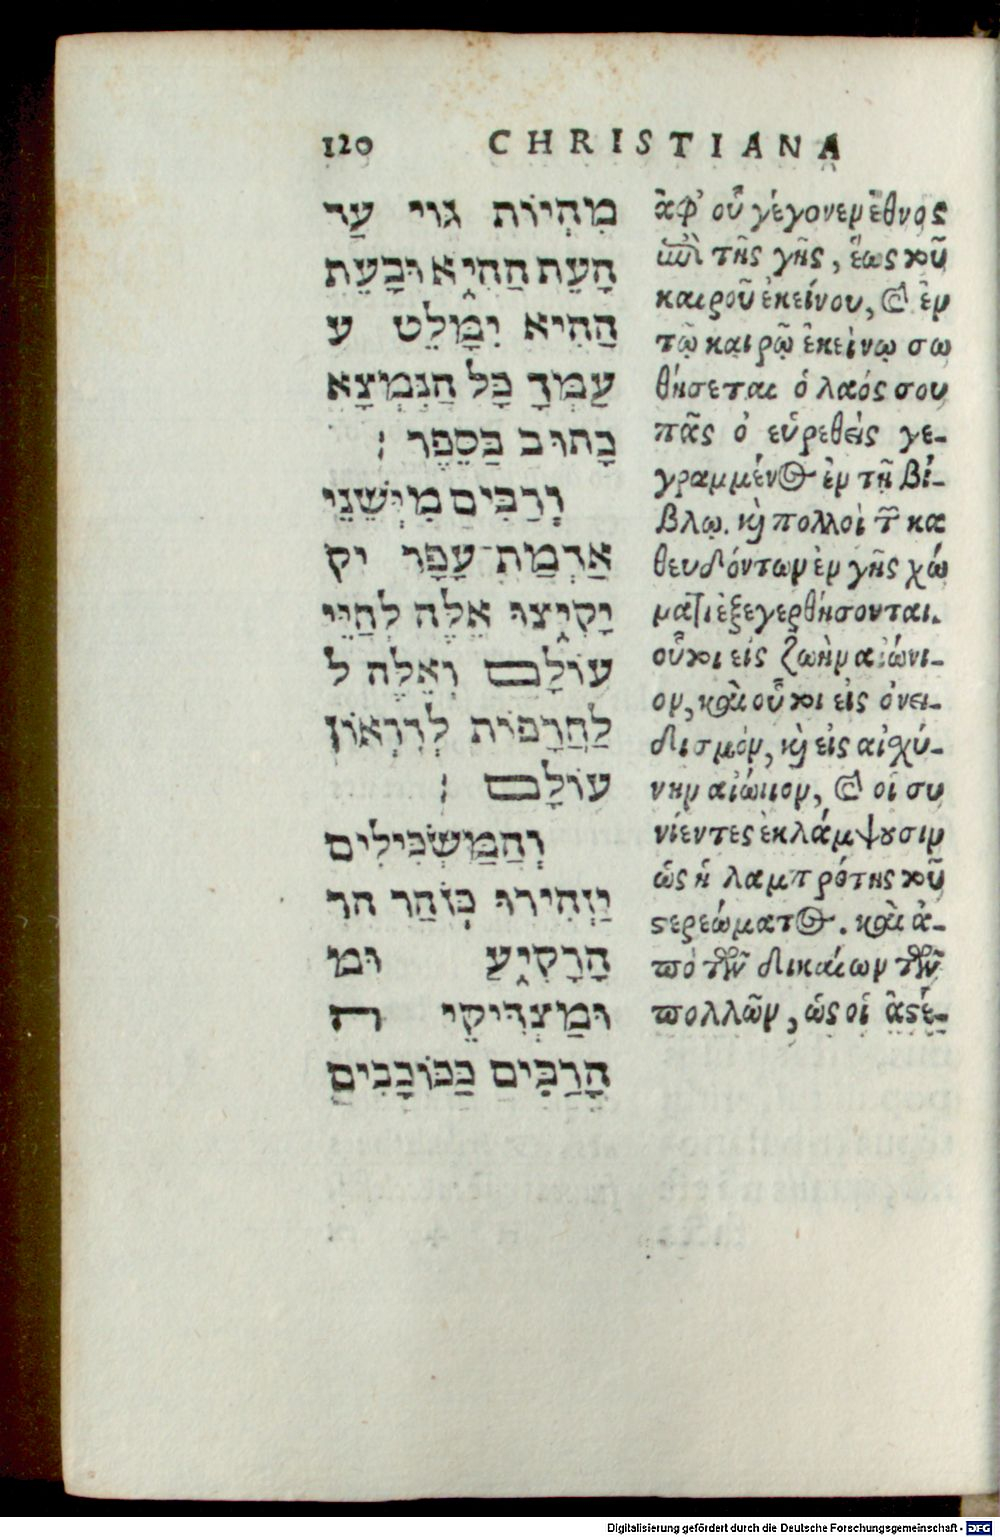 120 CHRISTIANA
מִהְיוֹת גוי עַד
הָעֵת הַהִיא וּבָעֵת
הַהִיא יִמָּלֵט ע
עַמְּךָ כָּל הַנִּמְצָא
כָּתוּב בַּסֵּפֶר :
וְרַבִּים מִיְּשֵׁנֵי
אַדְמַת־עָפָר יק
יָקִיצוּ אֵלֶּה לְחַיֵּי
עוֹלָם וְאֵלֶּה ל
לַחֲרָפוֹת לְדִרְאוֹן
עוֹלָם :
וְהַמַּשְׂכִּילִים
יַזְהִירוּ כְּזֹהַר הר
הָרָקִיעַ וּמ
וּמַצְדִּיקֵי ה
הָרַבִּים כַּכּוֹכָבִים
ἀφ’ οὗ γέγονεν ἔθνος
ἐπὶ τῆς γῆς, ἕως τοῦ
καιροῦ ἐκείνου, καὶ ἐν
τῷ καιρῷ ἐκείνῳ σω
θήσεται ὁ λαός σου
πᾶς ὁ εὑρεθεὶς γε-
γραμμένος ἐν τῇ βί-
βλῳ. καὶ πολλοὶ τῶν κα
θευδόντων ἐν γῆς χώ
ματι ἐξεγερθήσονται.
οὗτοι εἰς ζωὴν αἰώνι-
ον, καὶ οὗτοι εἰς ὀνει-
δισμόν, καὶ εἰς αἰσχύ-
νην αἰώνιον, καὶ οἱ συ
νίεντες ἐκλάμψουσιν
ὡς ἡ λαμπρότης τοῦ
στερεώματος. καὶ ἀ-
πὸ τῶν δικαίων τῶν
πολλῶν, ὡς οἱ ἀστέ-
Digitalisierung gefördert durch die Deutsche Forschungsgemeinschaft - DFG